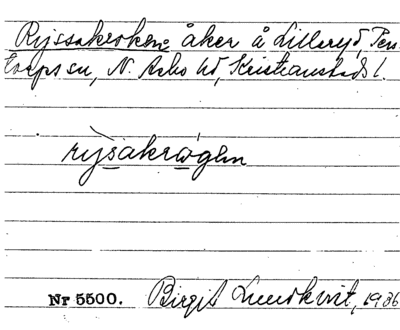 Ryssakroken: åker å Lilleryd, Pers-
torps sn, N. Åsbo hd, Kristianstads l.
rysakrogən
Nr 5500. Birgit Lundkvist, 1936